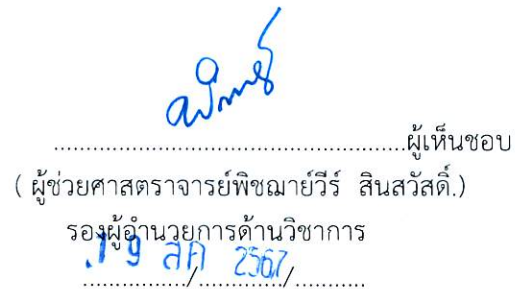 ......................................................ผู้เห็นชอบ
( ผู้ช่วยศาสตราจารย์พิชฌาย์วีร์ สินสวัสดิ์.)
รองผู้อำนวยการด้านวิชาการ
19 สค 2567
................/............../...........